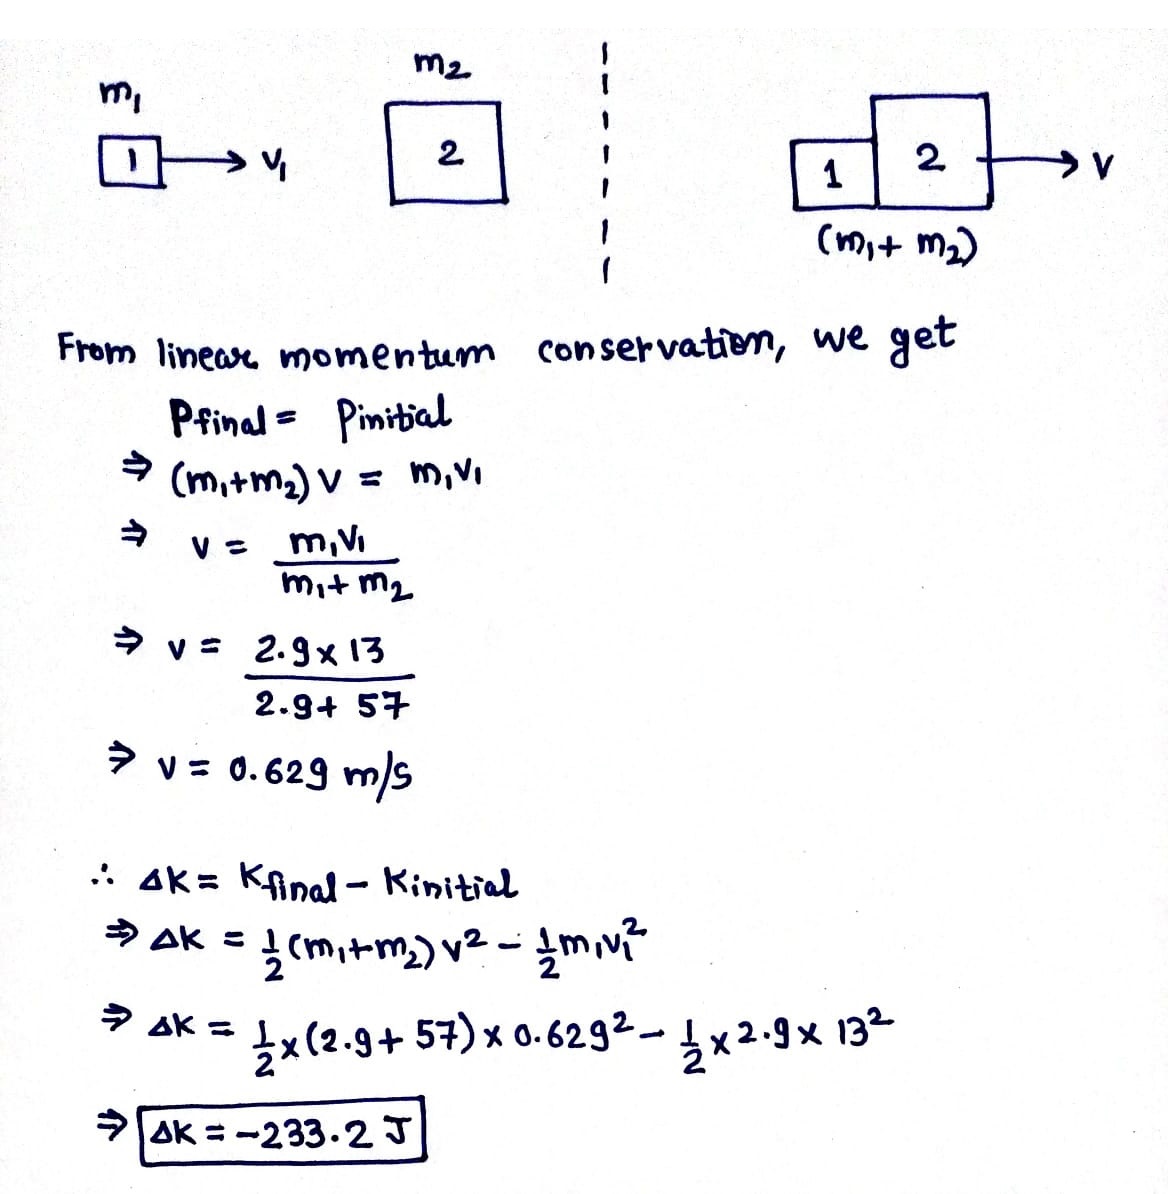 m₁
m₂
1
v₁
2
1
2
v
(m₁+ m₂)
From linear momentum conservation, we get
Pfinal = Pinitial
⇒ (m₁+m₂) v = m₁v₁
⇒ v = m₁v₁ / m₁+ m₂
⇒ v = 2.9 x 13 / 2.9 + 57
⇒ v = 0.629 m/s
∴ ΔK = Kfinal - Kinitial
⇒ ΔK = 1/2 (m₁+m₂) v² - 1/2 m₁v₁²
⇒ ΔK = 1/2 x (2.9 + 57) x 0.629² - 1/2 x 2.9 x 13²
⇒ ΔK = -233.2 J